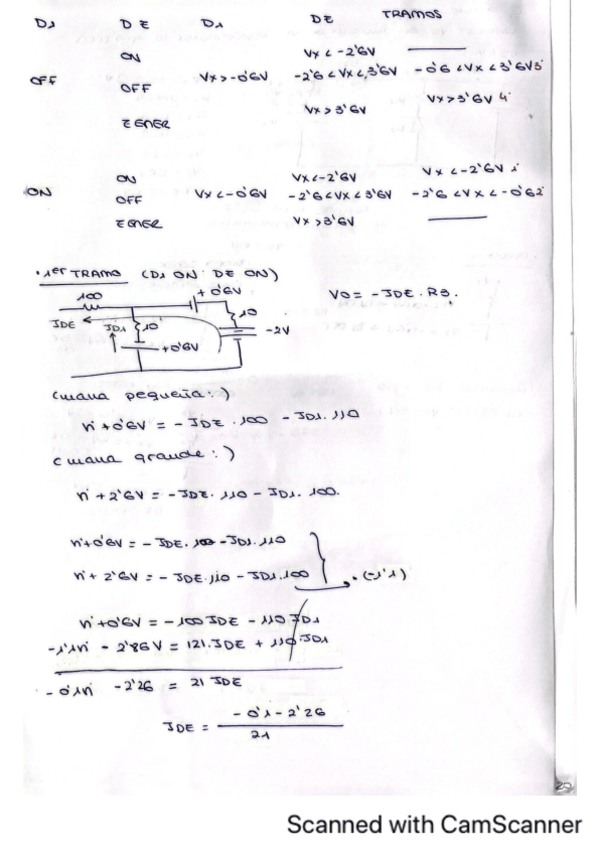 D1 DZ D1 DZ TRAMOS
ON Vx < -2'6V
OFF OFF Vx > -0'6V -2'6 < Vx < 3'6V -0'6 < Vx < 3'6V 3·
ZENER Vx > 3'6V Vx > 3'6V 4·
ON Vx < -2'6V Vx < -2'6V 1·
ON OFF Vx < -0'6V -2'6 < Vx < 3'6V -2'6 < Vx < -0'6 2·
ZENER Vx > 3'6V
· 1er TRAMO (D1 ON · DZ ON)
+ 0'6V
100 10
V0 = -IDZ · R3.
IDZ ID1 10 -2V
+0'6V
(malla pequeña:)
Vi + 0'6V = - IDZ · 100 - ID1 · 110
(malla grande:)
Vi + 2'6V = - IDZ · 110 - ID1 · 100.
Vi + 0'6V = - IDZ · 100 - ID1 · 110
Vi + 2'6V = - IDZ · 110 - ID1 · 100 } · (-1'1)
Vi + 0'6V = - 100 IDZ - 110 ID1
-1'1Vi - 2'86V = 121 · IDZ + 110 ID1
- 0'1Vi - 2'26 = 21 IDZ
IDZ = - 0'1 - 2'26
21
Scanned with CamScanner